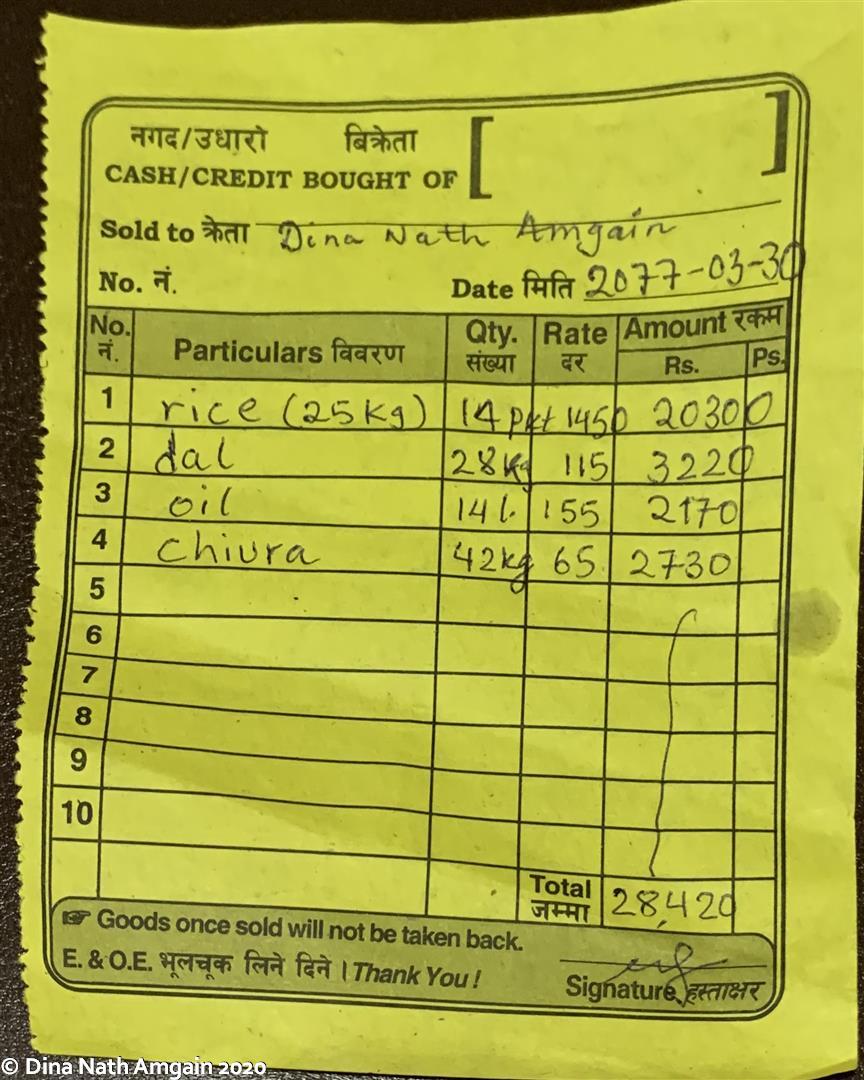 नगद/उधारो बिक्रेता [ ]
CASH/CREDIT BOUGHT OF
Sold to क्रेता Dina Nath Amgain
No. नं. Date मिति 2077-03-30
No. नं. Particulars विवरण Qty. संख्या Rate दर Amount रकम Rs. Ps.
1 rice (25kg) 14 pkt 1450 20300
2 dal 28kg 115 3220
3 oil 14 l. 155 2170
4 chiura 42kg 65 2730
5
6
7
8
9
10
Total जम्मा 28,420
☞ Goods once sold will not be taken back.
E. & O.E. भूलचूक लिने दिने । Thank You !
Signature हस्ताक्षर
© Dina Nath Amgain 2020